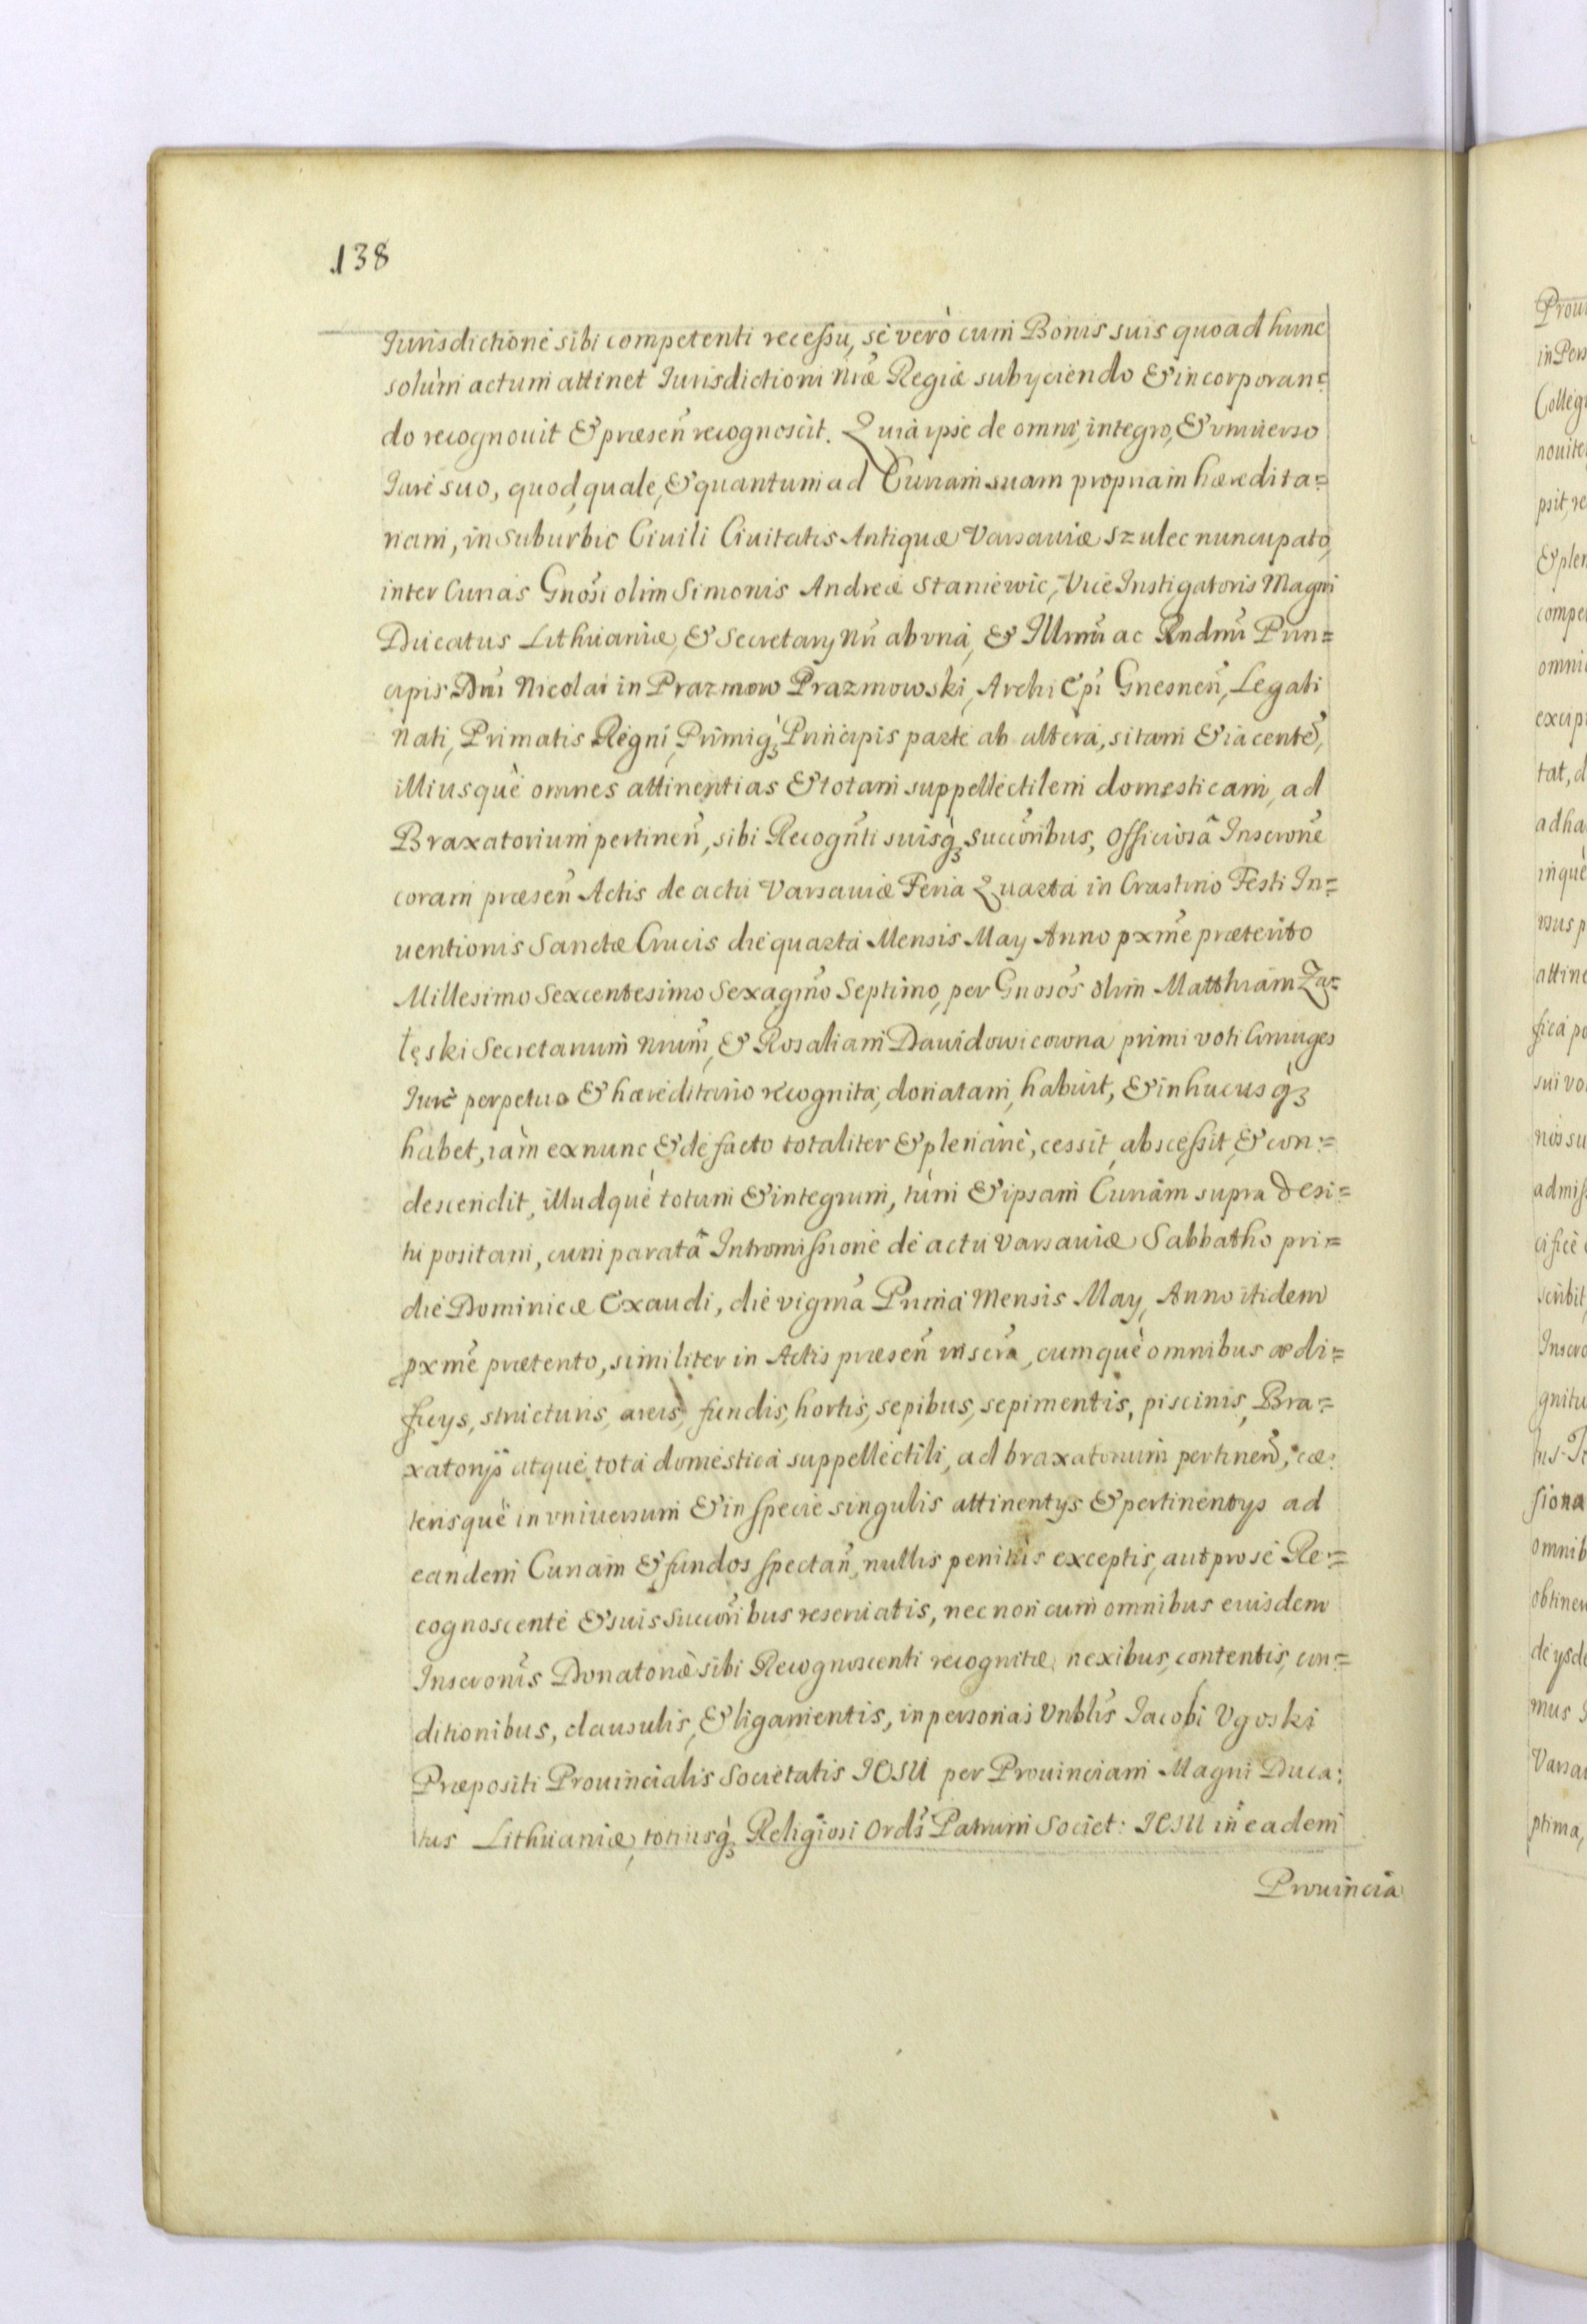 138
Jurisdictione sibi competenti recessu, se verò cum Bonis suis quoad hunc
solùm actum attinet Jurisdictioni nr̃æ Regiæ subÿciendo & incorporan=
do recognouit & præsen̄ recognoscit. Quia ipse de omni, integro, & vniuerso
Jure suo, quod, quale, & quantum ad Curiam suam propriam hæredita=
riam, in suburbio Ciuili Ciuitatis Antiquæ Varsauiæ Szulec nuncupato,
inter Curias Gnosi olim Simonis Andreæ Staniewic, Vice Instigatoris Magni
Ducatus Lithuaniæ, & Secretarÿ Nr̃i ab vna, & Illmi ac Rndmi Prin=
cipis Dni Nicolai in Prazmow Prazmowski, Archi Epi Gnesnen̄, Legati
Nati, Primatis Regni, Primiq̀; Principis parte ab altera, sitam & iacente,
illiusquè omnes attinentias & totam suppellectilem domesticam, ad
Braxatorium pertinen̄, sibi Recognti suisq̀; succoribus, Officiosâ Inscrone
coram præsen̄ Actis de actu Varsauiæ Feria Quarta in Crastino Festi In=
uentionis Sanctæ Crucis die quarta Mensis Maÿ Anno pxme præterito
Millesimo Sexcentesimo Sexagmo Septimo, per Gnosos olim Matthiam Za=
łęski Secretarium Nrum, & Rosaliam Dawidowicowna primi voti Coniuges
Jure perpetuo & hæreditario recognita, donatam, habuit, & in hucusq̀;
habet, iam exnunc & de facto totaliter & plenariè, cessit, abscessit, & con=
descendit, illudquè totum & integrum, tùm & ipsam Curiam supra de si=
tu positam, cum paratâ Intromissione de actu Varsauiæ Sabbatho pri=
die Dominicæ Exaudi, die vigma Prima Mensis Maÿ, Anno itidem
pxme præterito, similiter in Actis præsen̄ inscra, cumquè omnibus ædi=
ficÿs, structuris, areis, fundis, hortis, sepibus, sepimentis, piscinis, Bra=
xatorÿs atquè tota domestica suppellectili, ad braxatorium pertinen̄, cæ=
terisquè in vniuersum & in specie singulis attinentÿs & pertinentÿs ad
eandem Curiam & fundos spectan̄, nullis penitùs exceptis, aut pro se Re=
cognoscente & suis succoribus reseruatis, nec non cum omnibus eiusdem
Inscronis Donatoriæ sibi Recognoscenti recognitæ, nexibus, contentis, con=
ditionibus, clausulis, & ligamentis, in personas Vnblis Jacobi Vgoski
Præpositi Prouincialis Societatis JESU per Prouinciam Magni Duca:
tus Lithuaniæ, totiusq̀; Religiosi Ordis Patrum Societ: JESU in eadem
Prouincia